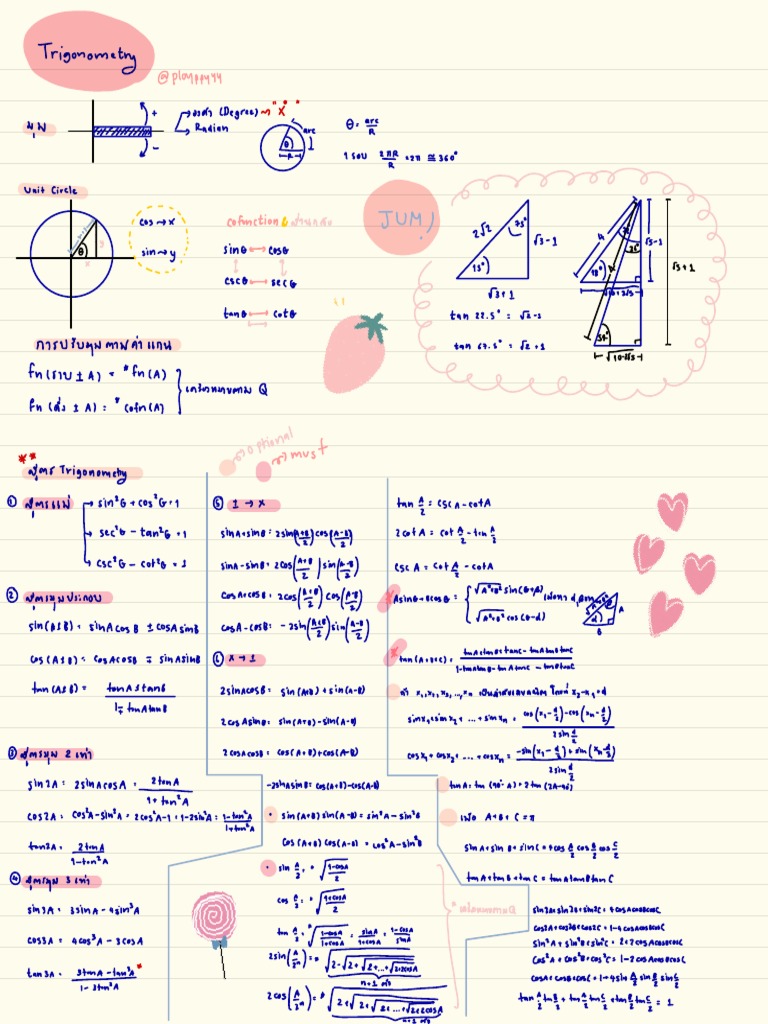 Trigonometry
@ployppyyy
มุม
+
-
องศา (Degree) → "x°"
Radian
arc
θ
R
θ = arc/R
1 รอบ 2πR/R = 2π ≅ 360°
Unit Circle
θ
x
y
cos → x
sin → y
cofunction &
sinθ ↔ cosθ
cscθ ↔ secθ
tanθ ↔ cotθ
JUM!
2√2
75°
15°
√3-1
√3+1
tan 22.5° = √2-1
tan 67.5° = √2+1
4
18°
√5-1
√5+1
√10-2√5
การปรับมุมตามค่าแกน
fn(ราบ ± A) = * fn(A)
fn(ดิ่ง ± A) = * cofn(A)
เครื่องหมายตาม Q
optional
must
** สูตร Trigonometry
① สูตรแม่
sin²θ + cos²θ = 1
sec²θ - tan²θ = 1
csc²θ - cot²θ = 1
② สูตรมุมประกอบ
sin(A±B) = sinA cosB ± cosA sinB
cos(A±B) = cosA cosB ∓ sinA sinB
tan(A±B) = tanA ± tanB / 1 ∓ tanA tanB
③ สูตรมุม 2 เท่า
sin2A = 2sinA cosA = 2tanA / 1+tan²A
cos2A = cos²A - sin²A = 2cos²A - 1 = 1 - 2sin²A = 1-tan²A / 1+tan²A
tan2A = 2tanA / 1-tan²A
④ สูตรมุม 3 เท่า
sin3A = 3sinA - 4sin³A
cos3A = 4cos³A - 3cosA
tan3A = 3tanA - tan³A / 1-3tan²A
⑤ 1 → x
sinA+sinB = 2sin(A+B/2)cos(A-B/2)
sinA-sinB = 2cos(A+B/2)sin(A-B/2)
cosA+cosB = 2cos(A+B/2)cos(A-B/2)
cosA-cosB = -2sin(A+B/2)sin(A-B/2)
⑥ x → 1
2sinAcosB = sin(A+B)+sin(A-B)
2cosAsinB = sin(A+B)-sin(A-B)
2cosAcosB = cos(A+B)+cos(A-B)
-2sinAsinB = cos(A+B)-cos(A-B)
sin(A+B)sin(A-B) = sin²A - sin²B
cos(A+B)cos(A-B) = cos²A - sin²B
sin A/2 = * √(1-cosA / 2)
cos A/2 = * √(1+cosA / 2)
tan A/2 = * √(1-cosA / 1+cosA) = sinA / 1+cosA = 1-cosA / sinA
tan A/2 = cscA - cotA
2cotA = cot A/2 - tan A/2
cscA = cot A/2 - cotA
Asinθ+Bcosθ = √(A²+B²) sin(θ+β)
√(A²+B²) cos(θ-α)
tan(A+B+C) = tanA+tanB+tanC - tanAtanBtanC / 1-tanAtanB-tanAtanC-tanBtanC
sinx₁+sinx₂+ ... +sinxₙ = cos(x₁-d/2)-cos(xₙ+d/2) / 2sin d/2
cosx₁+cosx₂+ ... +cosxₙ = -sin(x₁-d/2)+sin(xₙ+d/2) / 2sin d/2
เมื่อ A+B+C = π
sinA+sinB+sinC = 4cos A/2 cos B/2 cos C/2
tanA+tanB+tanC = tanAtanBtanC
sin2A+sin2B+sin2C = 4
sin²A+sin²B+sin²C = 2+2cosAcosBcosC
cos²A+cos²B+cos²C = 1-2cosAcosBcosC
cosA+cosB+cosC = 1+4sin A/2 sin B/2 sin C/2
tan A/2 tan B/2 + tan A/2 tan C/2 + tan B/2 tan C/2 = 1